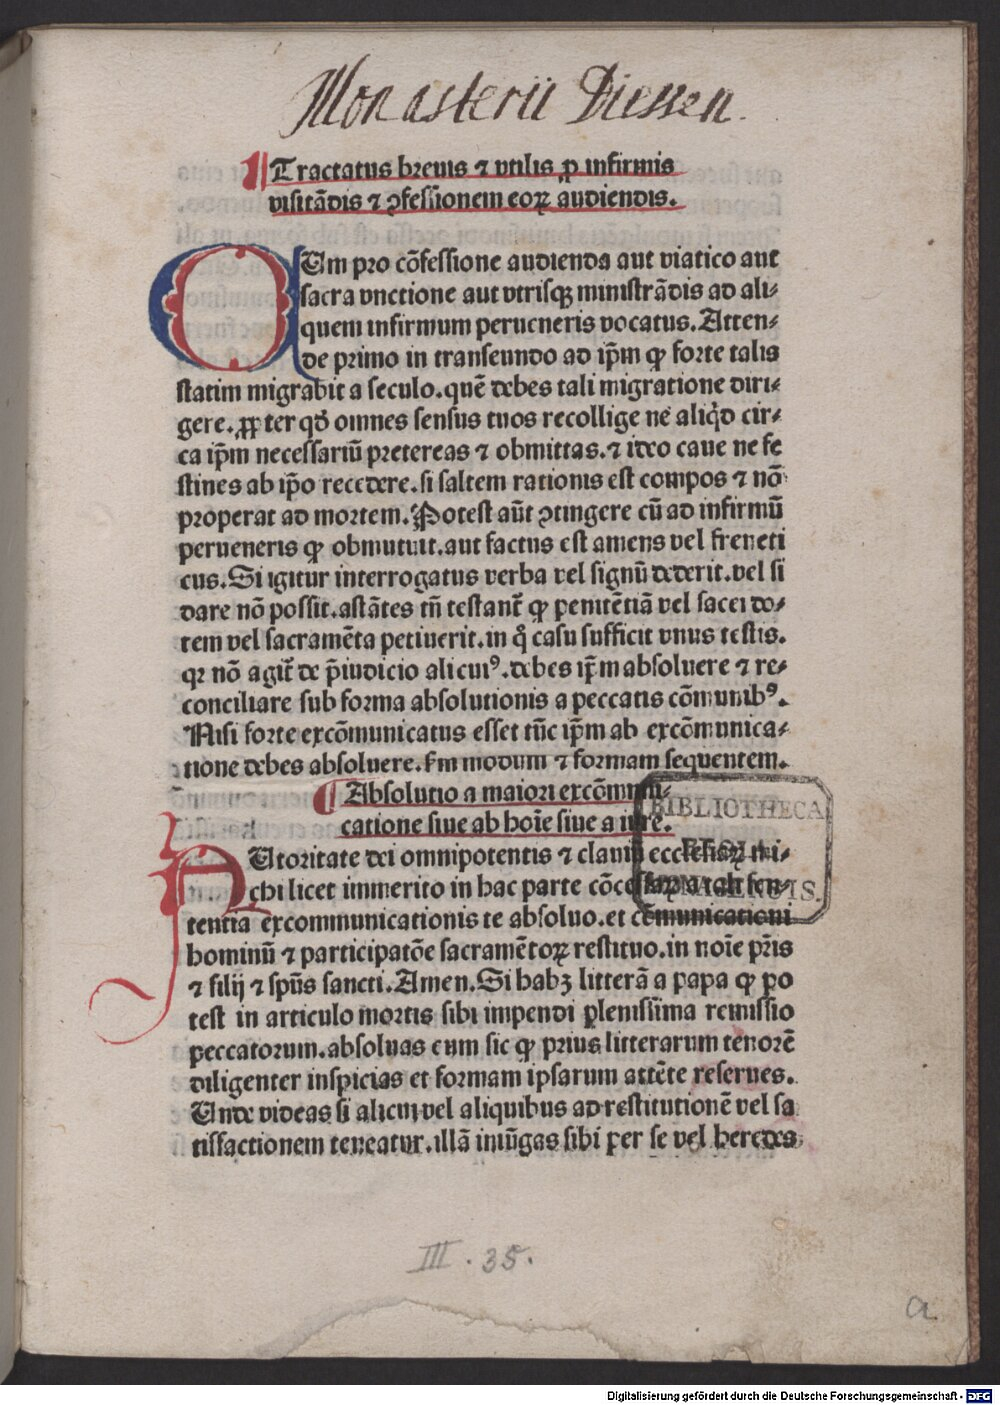 Monasterii Diessen.
¶ Tractatus breuis ⁊ vtilis ꝓ infirmis
visitādis ⁊ ꝯfessionem eoꝝ audiendis.
CUm pro cōfessione audienda aut viatico aut
sacra vnctione aut vtrisqꝫ ministrādis ad ali⸗
quem infirmum perueneris vocatus. Atten⸗
de primo in transeundo ad ip̄m ꝙ forte talis
statim migrabit a seculo. quē debes tali migratione diri⸗
gere. ꝓpter qd̄ omnes sensus tuos recollige ne aliq̇d cir⸗
ca ip̄m necessariū pretereas ⁊ obmittas. ⁊ ideo caue ne fe
stines ab ip̄o recedere. si saltem rationis est compos ⁊ nō
properat ad mortem. Potest aūt ꝯtingere cū ad infirmū
perueneris ꝙ obmutuit. aut factus est amens vel freneti
cus. Si igitur interrogatus verba vel signū dederit. vel si
dare nō possit. astātes tn̄ testant᷑ ꝙ penitētiā vel sacerdo⸗
tem vel sacramēta petiuerit. in q̊ casu sufficit vnus testis.
qꝛ nō agit᷑ de p̄iudicio alicuiꝰ. debes ip̄m absoluere ⁊ re⸗
conciliare sub forma absolutionis a peccatis cōmunibꝰ.
Nisi forte excōmunicatus esset tūc ip̄m ab excōmunica⸗
tione debes absoluere. s̄m modum ⁊ formam sequentem.
¶ Absolutio a maiori excōmuni⸗
catione siue ab hoīe siue a iure.
AUtoritate dei omnipotentis ⁊ clauiū ecclesiaꝝ mi⸗
chi licet immerito in hac parte cōcessaꝝ a tali sen⸗
tentia excommunicationis te absoluo. et cōmunicationi
hominū ⁊ participatōe sacramētoꝝ restituo. in noīe pr̄is
⁊ filij ⁊ sp̄us sancti. Amen. Si habꝫ litterā a papa ꝙ po
test in articulo mortis sibi impendi plenissima remissio
peccatorum. absoluas eum sic ꝙ prius litterarum tenorē
diligenter inspicias et formam ipsarum attēte reserues.
Unde videas si alicui vel aliquibus ad restitutionē vel sa
tisfactionem teneatur. illā iniūgas sibi per se vel heredes
BIBLIOTHECA
REGIA
MONACENSIS.
III. 35.
a
Digitalisierung gefördert durch die Deutsche Forschungsgemeinschaft - DFG